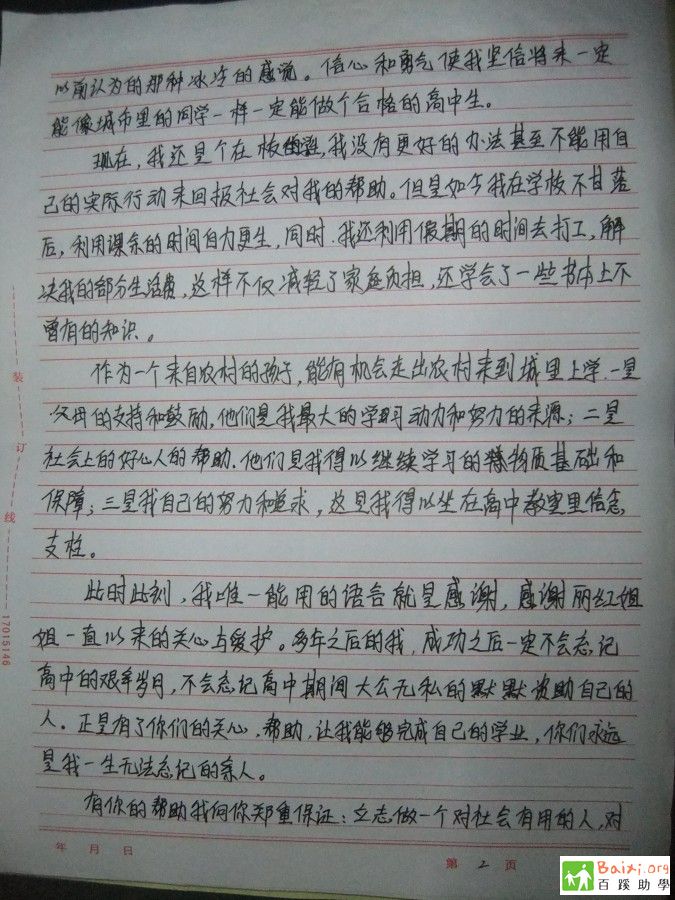 以前认为的那种冰冷的感觉。信心和勇气使我坚信将来一定
能像城市里的同学一样一定能做个合格的高中生。
现在，我还是个在校生，我没有更好的办法甚至不能用自
己的实际行动来回报社会对我的帮助。但是如今我在学校不甘落
后，利用课余的时间自力更生，同时，我还利用假期的时间去打工，解
决我的部分生活费，这样不仅减轻了家庭负担，还学会了一些书本上不
曾有的知识。
作为一个来自农村的孩子，能有机会走出农村来到城里上学.一是
父母的支持和鼓励，他们是我最大的学习动力和努力的来源；二是
社会上的好心人的帮助.他们是我得以继续学习的物质基础和
保障；三是我自己的努力和追求，这是我得以坐在高中教室里信念
支柱。
此时此刻，我唯一能用的语言就是感谢，感谢丽红姐
姐一直以来的关心与爱护。多年之后的我，成功之后一定不会忘记
高中的艰辛岁月，不会忘记高中期间大公无私的默默资助自己的
人.正是有了你们的关心，帮助，让我能够完成自己的学业，你们永远
是我一生无法忘记的亲人。
有你的帮助我向你郑重保证：立志做一个对社会有用的人，对
年 月 日
第 2 页
装
订
线
17015146
Baixi.org
百蹊助學